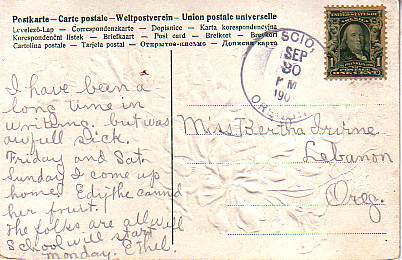 Postkarte - Carte postale - Weltpostverein - Union postale universelle
Levelező-Lap — Correspondenzkarte — Dopisnice — Karta korespondencyjna
Korespondenční lístek — Briefkaart — Post card — Brefkort — Brevkort
Cartolina postale — Tarjeta postal — Открытое-письмо — Дописна карта
SCIO,
SEP
30
P M
190
OREGON
1
I have been a
long time in
writing. but was
awfull sick.
Friday and Sat.
Sunday I come up
home. Edythe cannd
her fruit.
The folks are all will
School will start
monday. Ethel.
Miss Bertha Irvine
Lebanon
Oreg.